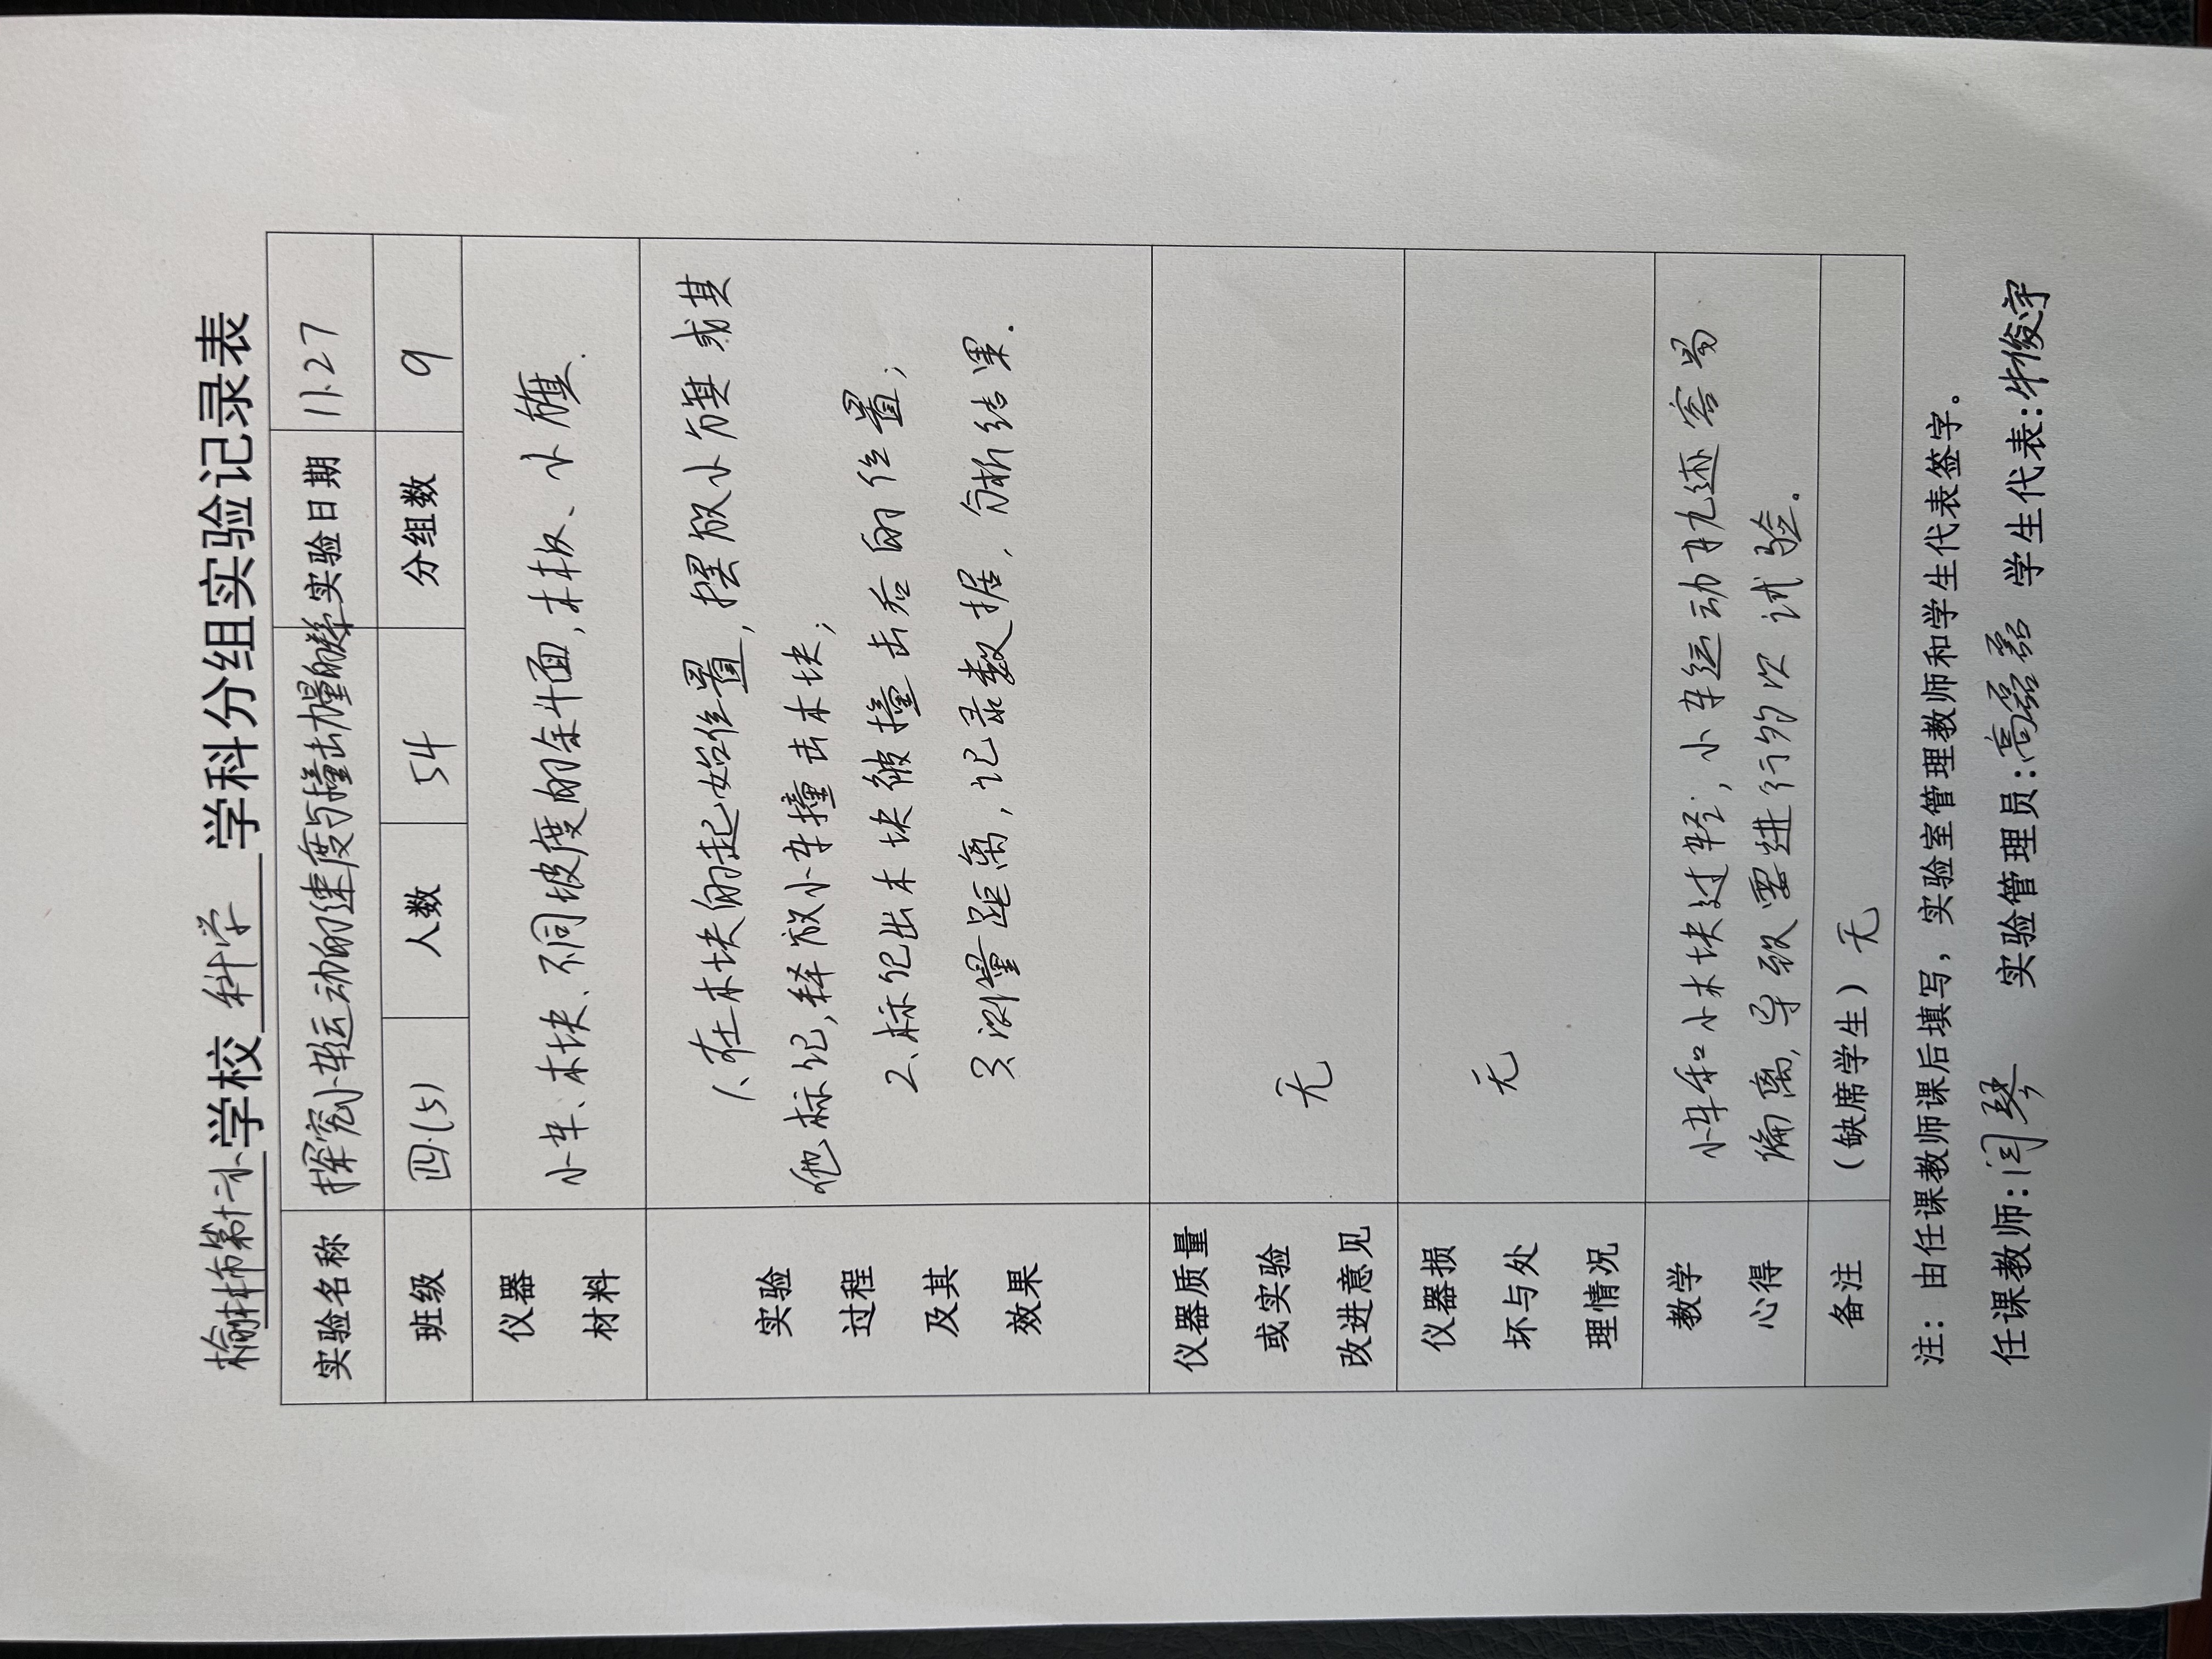 榆林市第十二小学校 科学 学科分组实验记录表
实验名称 探究小车运动的速度与撞击力量的关系 实验日期 11.27
班级 四.(5) 人数 54 分组数 9
仪器
材料
小车、木块、不同坡度的斜面,木板、小旗.
实验
过程
及其
效果
1、在木块的起始位置,摆放小旗或其
他标记,释放小车撞击木块;
2、标记出木块被撞击后的位置;
3、测量距离,记录数据,分析结果.
仪器质量
或实验
改进意见
无
仪器损
坏与处
理情况
无
教学
心得
小车和小木块过轻,小车运动轨迹容易
偏离,导致要进行多次试验.
备注 (缺席学生)无
注:由任课教师课后填写,实验室管理教师和学生代表签字。
任课教师:闫琴 实验管理员:高磊磊 学生代表:牛俊宇